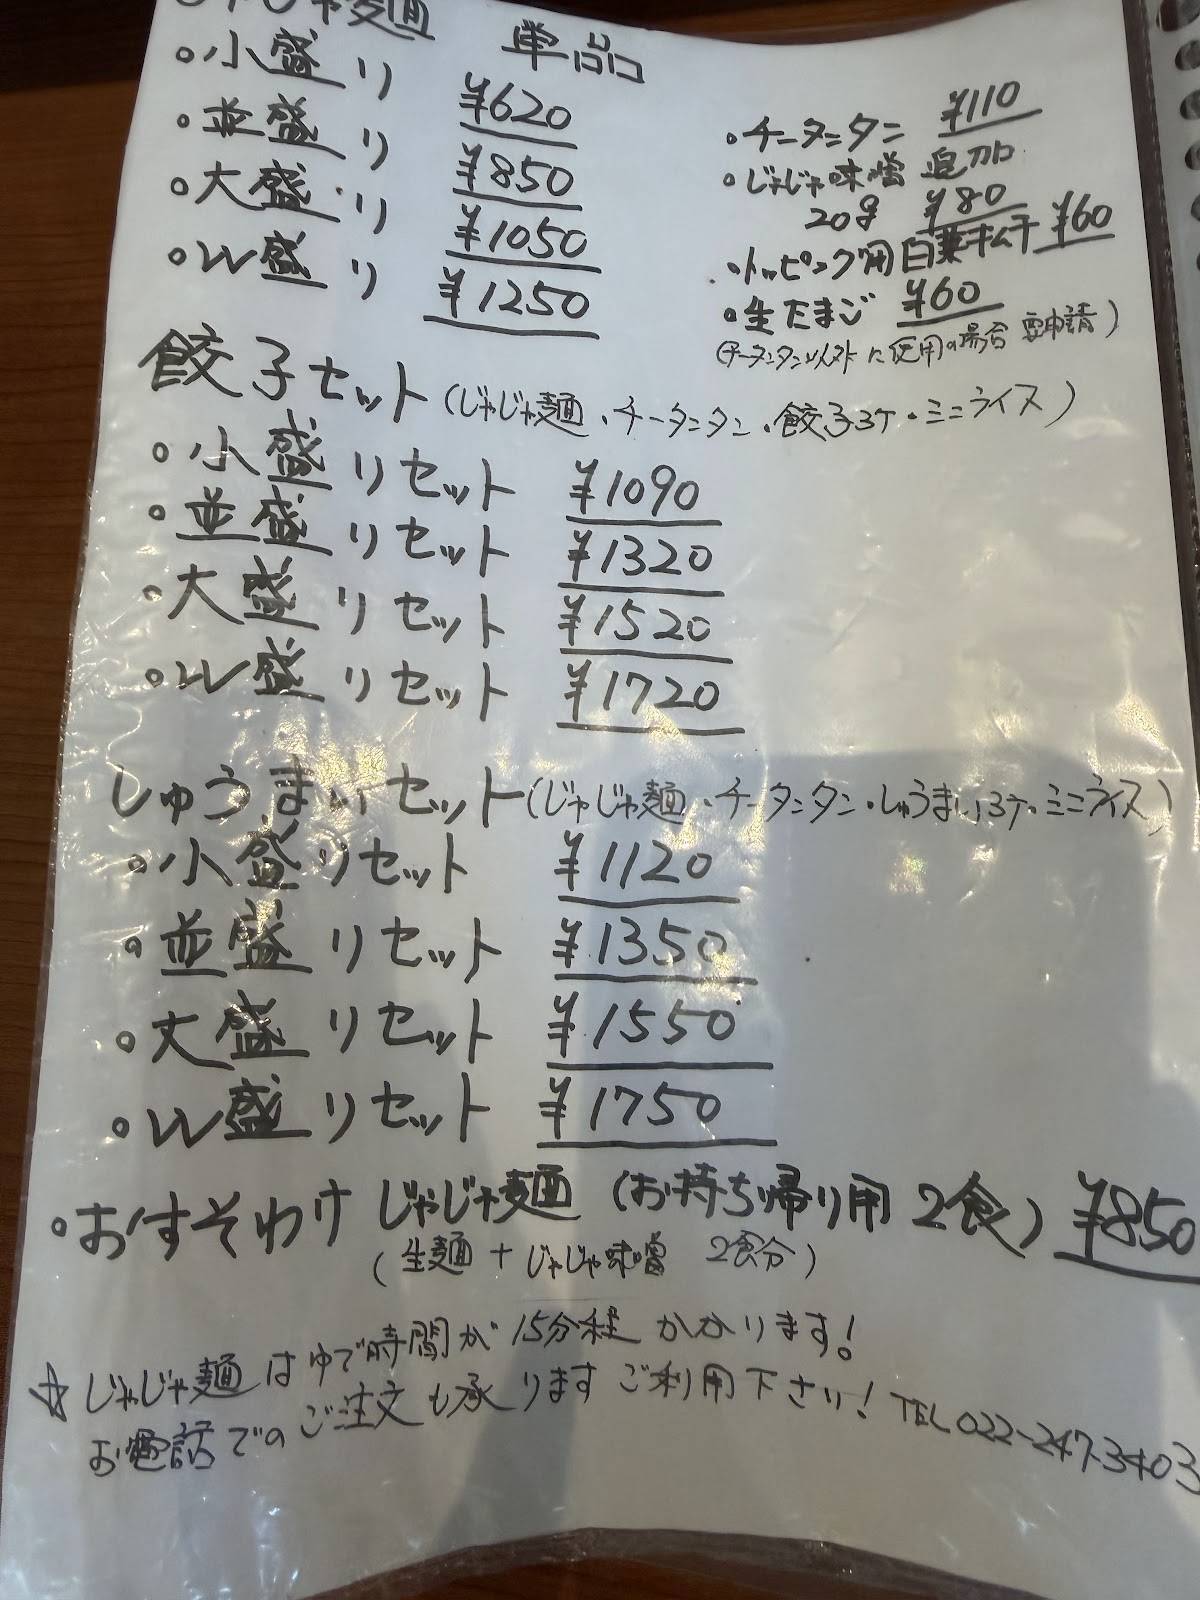 じゃじゃ麺 単品
・小盛り ¥620
・並盛り ¥850
・大盛り ¥1050
・W盛り ¥1250
・チータンタン ¥110
・じゃじゃ味噌 追加
20g ¥80
・トッピング用白菜キムチ ¥60
・生たまご ¥60
(チータンタン以外に使用の場合 要申請)
餃子セット(じゃじゃ麺・チータンタン・餃子3ケ・ミニライス)
・小盛りセット ¥1090
・並盛りセット ¥1320
・大盛りセット ¥1520
・W盛りセット ¥1720
しゅうまいセット(じゃじゃ麺・チータンタン・しゅうまい3ケ・ミニライス)
・小盛りセット ¥1120
・並盛りセット ¥1350
・大盛りセット ¥1550
・W盛りセット ¥1750
・おすそわけ じゃじゃ麺 (お持ち帰り用 2食) ¥850
(生麺 + じゃじゃ味噌 2食分)
☆じゃじゃ麺はゆで時間が15分程かかります!
お電話でのご注文も承ります ご利用下さい! TEL022-247-3403